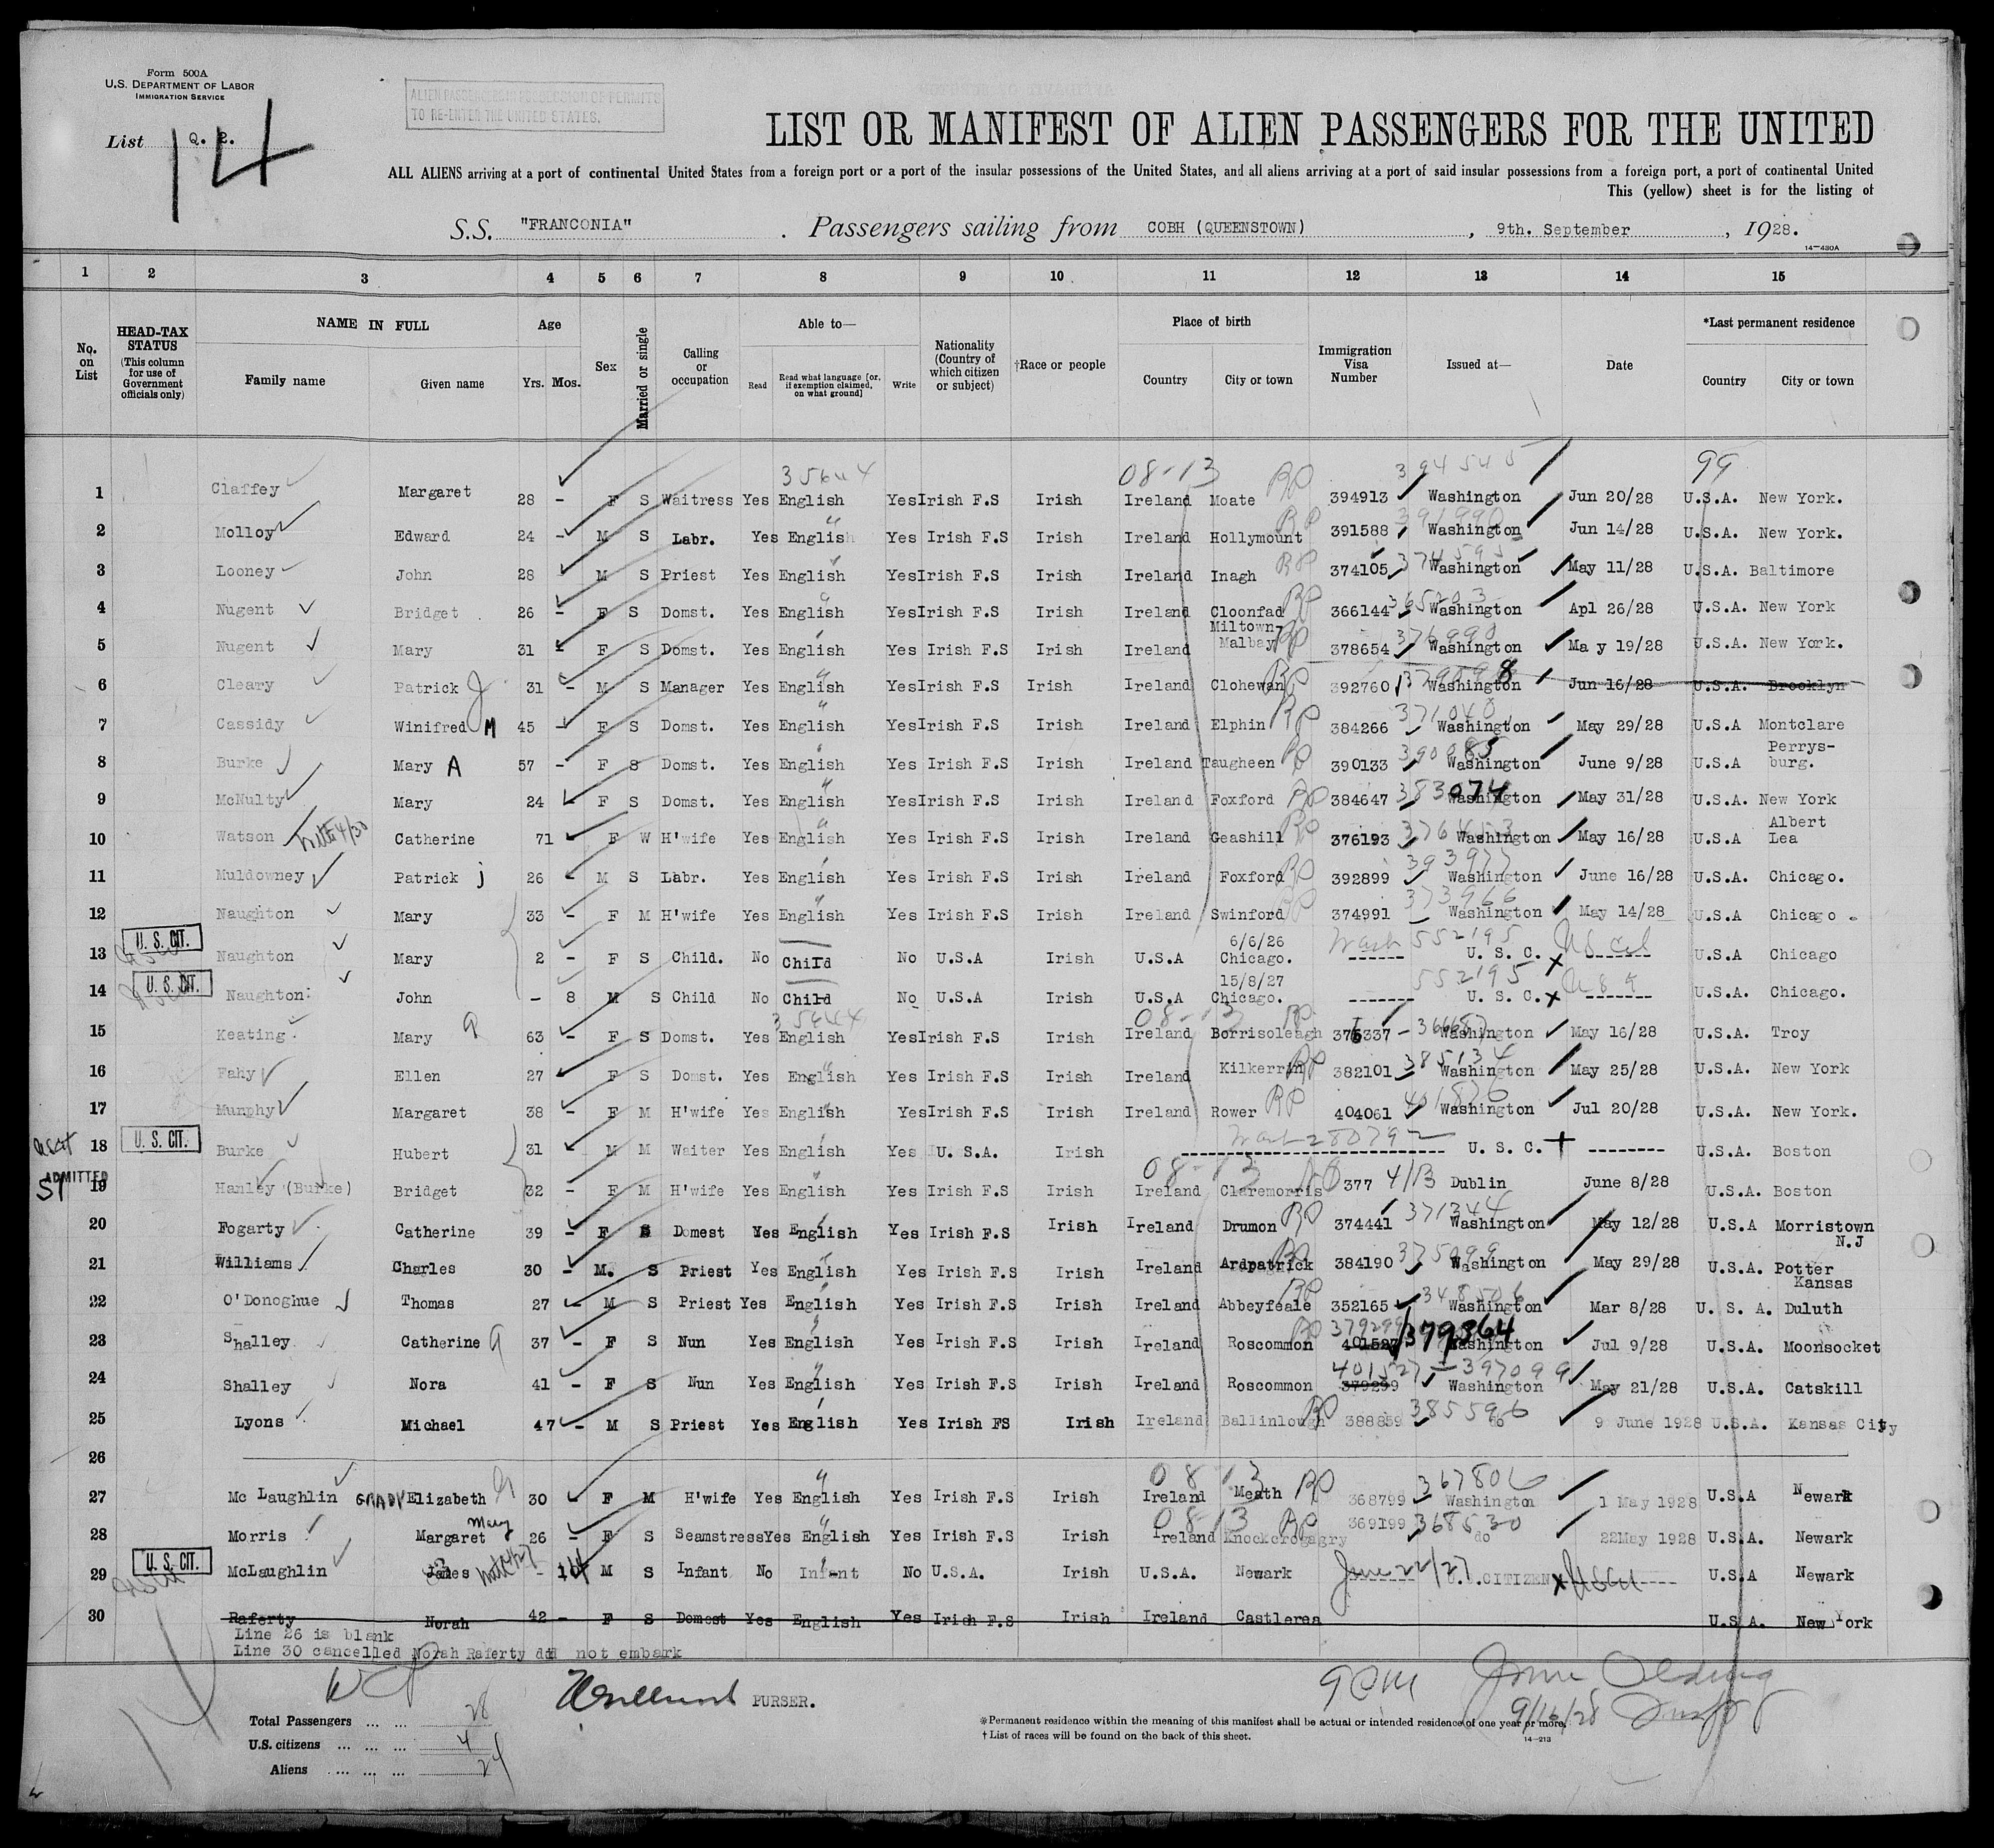 Form 500A
U.S. DEPARTMENT OF LABOR
IMMIGRATION SERVICE
ALIEN PASSENGERS IN POSSESSION OF PERMITS
TO RE-ENTER THE UNITED STATES.
List Q. 2.
14
LIST OR MANIFEST OF ALIEN PASSENGERS FOR THE UNITED
ALL ALIENS arriving at a port of continental United States from a foreign port or a port of the insular possessions of the United States, and all aliens arriving at a port of said insular possessions from a foreign port, a port of continental United
This (yellow) sheet is for the listing of
S.S. "FRANCONIA" . Passengers sailing from COBH (QUEENSTOWN) , 9th. September , 1928.
14—430A
1 2 3 4 5 6 7 8 9 10 11 12 13 14 15
No. on List
HEAD-TAX STATUS (This column for use of Government officials only)
NAME IN FULL
Family name Given name
Age
Yrs. Mos.
Sex
Married or single
Calling or occupation
Able to—
Read
Read what language [or, if exemption claimed, on what ground]
Write
Nationality (Country of which citizen or subject)
†Race or people
Place of birth
Country City or town
Immigration Visa Number
Issued at—
Date
*Last permanent residence
Country City or town
35644 08-13 RP 394545 99
1 Claffey Margaret 28 - F S Waitress Yes English Yes Irish F.S Irish Ireland Moate 394913 Washington Jun 20/28 U.S.A. New York.
2 Molloy Edward 24 - M S Labr. Yes English Yes Irish F.S Irish Ireland Hollymount RP 391588 Washington Jun 14/28 U.S.A. New York.
3 Looney John 28 - M S Priest Yes English Yes Irish F.S Irish Ireland Inagh RP 374105 Washington May 11/28 U.S.A. Baltimore
4 Nugent Bridget 26 - F S Domst. Yes English Yes Irish F.S Irish Ireland Cloonfad RP 366144 Washington Apl 26/28 U.S.A. New York
5 Nugent Mary 31 - F S Domst. Yes English Yes Irish F.S Irish Ireland Miltown-Malbay RP 378654 376990 Washington Ma y 19/28 U.S.A. New York.
6 Cleary Patrick J 31 - M S Manager Yes English Yes Irish F.S Irish Ireland Clohewan RP 392760 Washington Jun 16/28 U.S.A. Brooklyn
7 Cassidy Winifred M 45 - F S Domst. Yes English Yes Irish F.S Irish Ireland Elphin RP 384266 371040 Washington May 29/28 U.S.A Montclare
8 Burke Mary A 57 - F S Domst. Yes English Yes Irish F.S Irish Ireland Taugheen RP 390133 390085 Washington June 9/28 U.S.A Perrys-burg.
9 McNulty Mary 24 - F S Domst. Yes English Yes Irish F.S Irish Ireland Foxford RP 384647 383074 Washington May 31/28 U.S.A. New York
10 Watson Catherine 71 F W H'wife Yes English Yes Irish F.S Irish Ireland Geashill RP 376193 376453 Washington May 16/28 U.S.A Albert Lea
11 Muldowney Patrick j 26 - M S Labr. Yes English Yes Irish F.S Irish Ireland Foxford RP 392899 393977 Washington June 16/28 U.S.A. Chicago.
12 Naughton Mary 33 - F M H'wife Yes English Yes Irish F.S Irish Ireland Swinford RP 374991 373966 Washington May 14/28 U.S.A Chicago.
U. S. CIT.
13 Naughton Mary 2 - F S Child. No Child No U.S.A Irish U.S.A 6/6/26 Chicago. Wash 552195 ------ U. S. C. x ------ U.S.A Chicago
U. S. CIT.
14 Naughton: John - 8 M S Child No Child No U.S.A Irish U.S.A 15/8/27 Chicago. 552195 ------- U. S. C. x ------- U.S.A. Chicago.
35644 08-13 RP
15 Keating. Mary 63 - F S Domst. Yes English Yes Irish F.S Irish Ireland Borrisoleagh Washington May 16/28 U.S.A. Troy
16 Fahy Ellen 27 F S Domst. Yes English Yes Irish F.S Irish Ireland Kilkerrin RP 382101 385134 Washington May 25/28 U.S.A. New York
17 Munphy Margaret 38 - F M H'wife Yes English Yes Irish F.S Irish Ireland Rower RP 404061 401876 Washington Jul 20/28 U.S.A. New York.
U. S. CIT.
18 Burke Hubert 31 M M Waiter Yes English Yes U. S.A. Irish Wash 280792 ------ U. S. C. + -------- U.S.A. Boston
ADMITTED
SI
08-13
19 Hanley (Burke) Bridget 32 - F M H'wife Yes English Yes Irish F.S Irish Ireland Claremorris 377 4/13 Dublin June 8/28 U.S.A. Boston
20 Fogarty Catherine 39 - F S Domest Yes English Yes Irish F.S Irish Ireland Drumon RP 374441 371344 Washington May 12/28 U.S.A Morristown N.J
21 Williams Charles 30 - M. S Priest Yes English Yes Irish F.S Irish Ireland Ardpatrick RP 384190 Washington May 29/28 U.S.A. Potter Kansas
22 O'Donoghue Thomas 27 - M S Priest Yes English Yes Irish F.S Irish Ireland Abbeyfeale RP 352165 348506 Washington Mar 8/28 U. S. A. Duluth
23 Shalley Catherine 37 - F S Nun Yes English Yes Irish F.S Irish Ireland Roscommon RP 379299 401527 379864 Washington Jul 9/28 U.S.A. Moonsocket
24 Shalley Nora 41 - F S Nun Yes English Yes Irish F.S Irish Ireland Roscommon 401527 — 397099 379299 Washington May 21/28 U.S.A. Catskill
25 Lyons Michael 47 - M S Priest Yes English Yes Irish FS Irish Ireland Ballinlough RP 388859 385596 do 9 June 1928 U.S.A. Kansas City
26
08 13
27 Mc Laughlin GRADY Elizabeth 30 - F M H'wife Yes English Yes Irish F.S Irish Ireland Meath RP 368799 367806 Washington 1 May 1928 U.S.A Newark
08-13
28 Morris Margaret Mary 26 - F S Seamstress Yes English Yes Irish F.S Irish Ireland Knockcrogagry RP 369199 368530 do 22May 1928 U.S.A. Newark
U. S. CIT.
29 McLaughlin - M S Infant No Infant No U.S.A. Irish U.S.A. Newark June 22/27 U.S.CITIZEN x ------ U.S.A Newark
30 Raferty Norah 42 - F S Domest Yes English Yes Irish F.S Irish Ireland Castlerea U.S.A. New York
Line 26 is blank
Line 30 cancelled Norah Raferty did not embark
PURSER.
9/16/28
Total Passengers ... ... 28
U.S. citizens ... ... ... 4
Aliens ... ... ... 24
*Permanent residence within the meaning of this manifest shall be actual or intended residence of one year or more.
† List of races will be found on the back of this sheet.
14—213